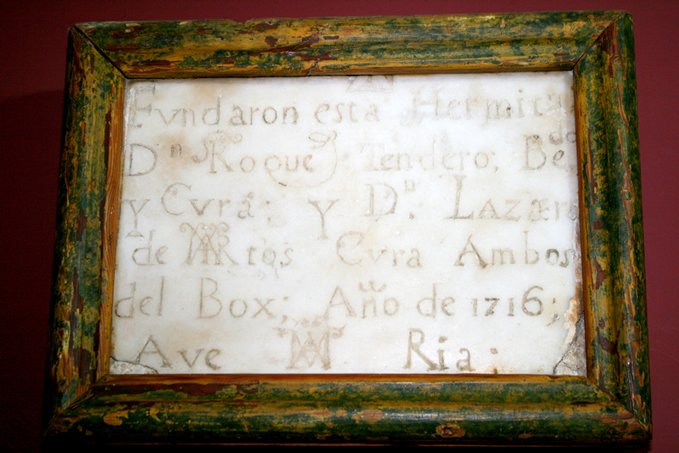 Fvndaron esta Hermita
Dn Roque Tendero; Bedo
y Cvra; y Dn: Lazaro
de MARtos Cvra Ambos
del Box; Año de 1716;
Ave MA Ria;